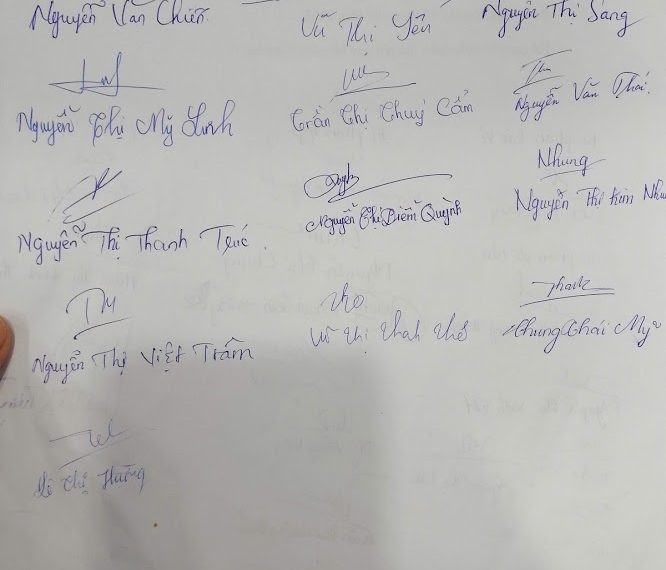 Nguyễn Văn Chiến
Vũ Thị Yến
Nguyễn Thị Sáng
Nguyễn Thị Mỹ Linh
Trần Thị Thuý Cẩm
Thu
Nguyễn Văn Thái.
Nguyễn Thị Thanh Trúc.
Quỳnh
Nguyễn Thị Diễm Quỳnh
Nhung
Nguyễn Thị Kim Nhu
Nguyễn Thị Việt Trâm
Thơ
Võ Thị Thanh Thơ
Thank
Chung Thái Mỹ
Lê Thị Hường